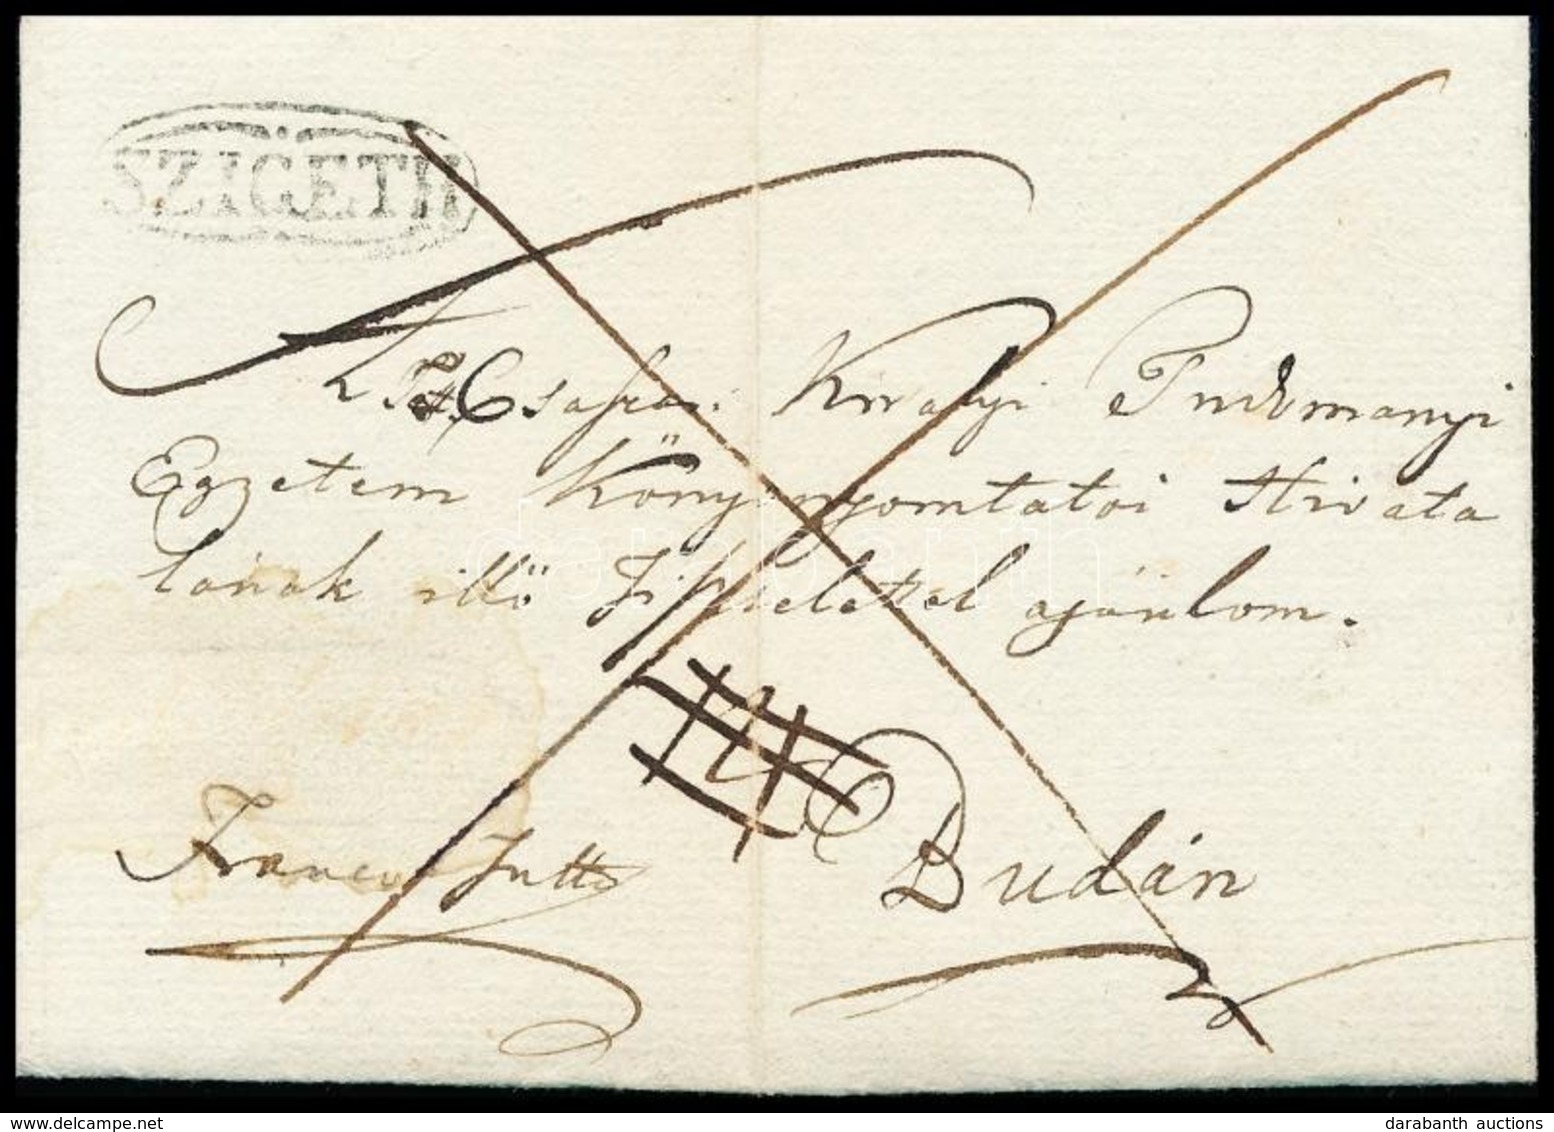 SZIGETH
Királyi Tudományi
Egyetem Könyvnyomtatói Hivata
lának illő Tisztelettel ajánlom.
Franco Tutto
Budán
darabanth
darabanth auctions